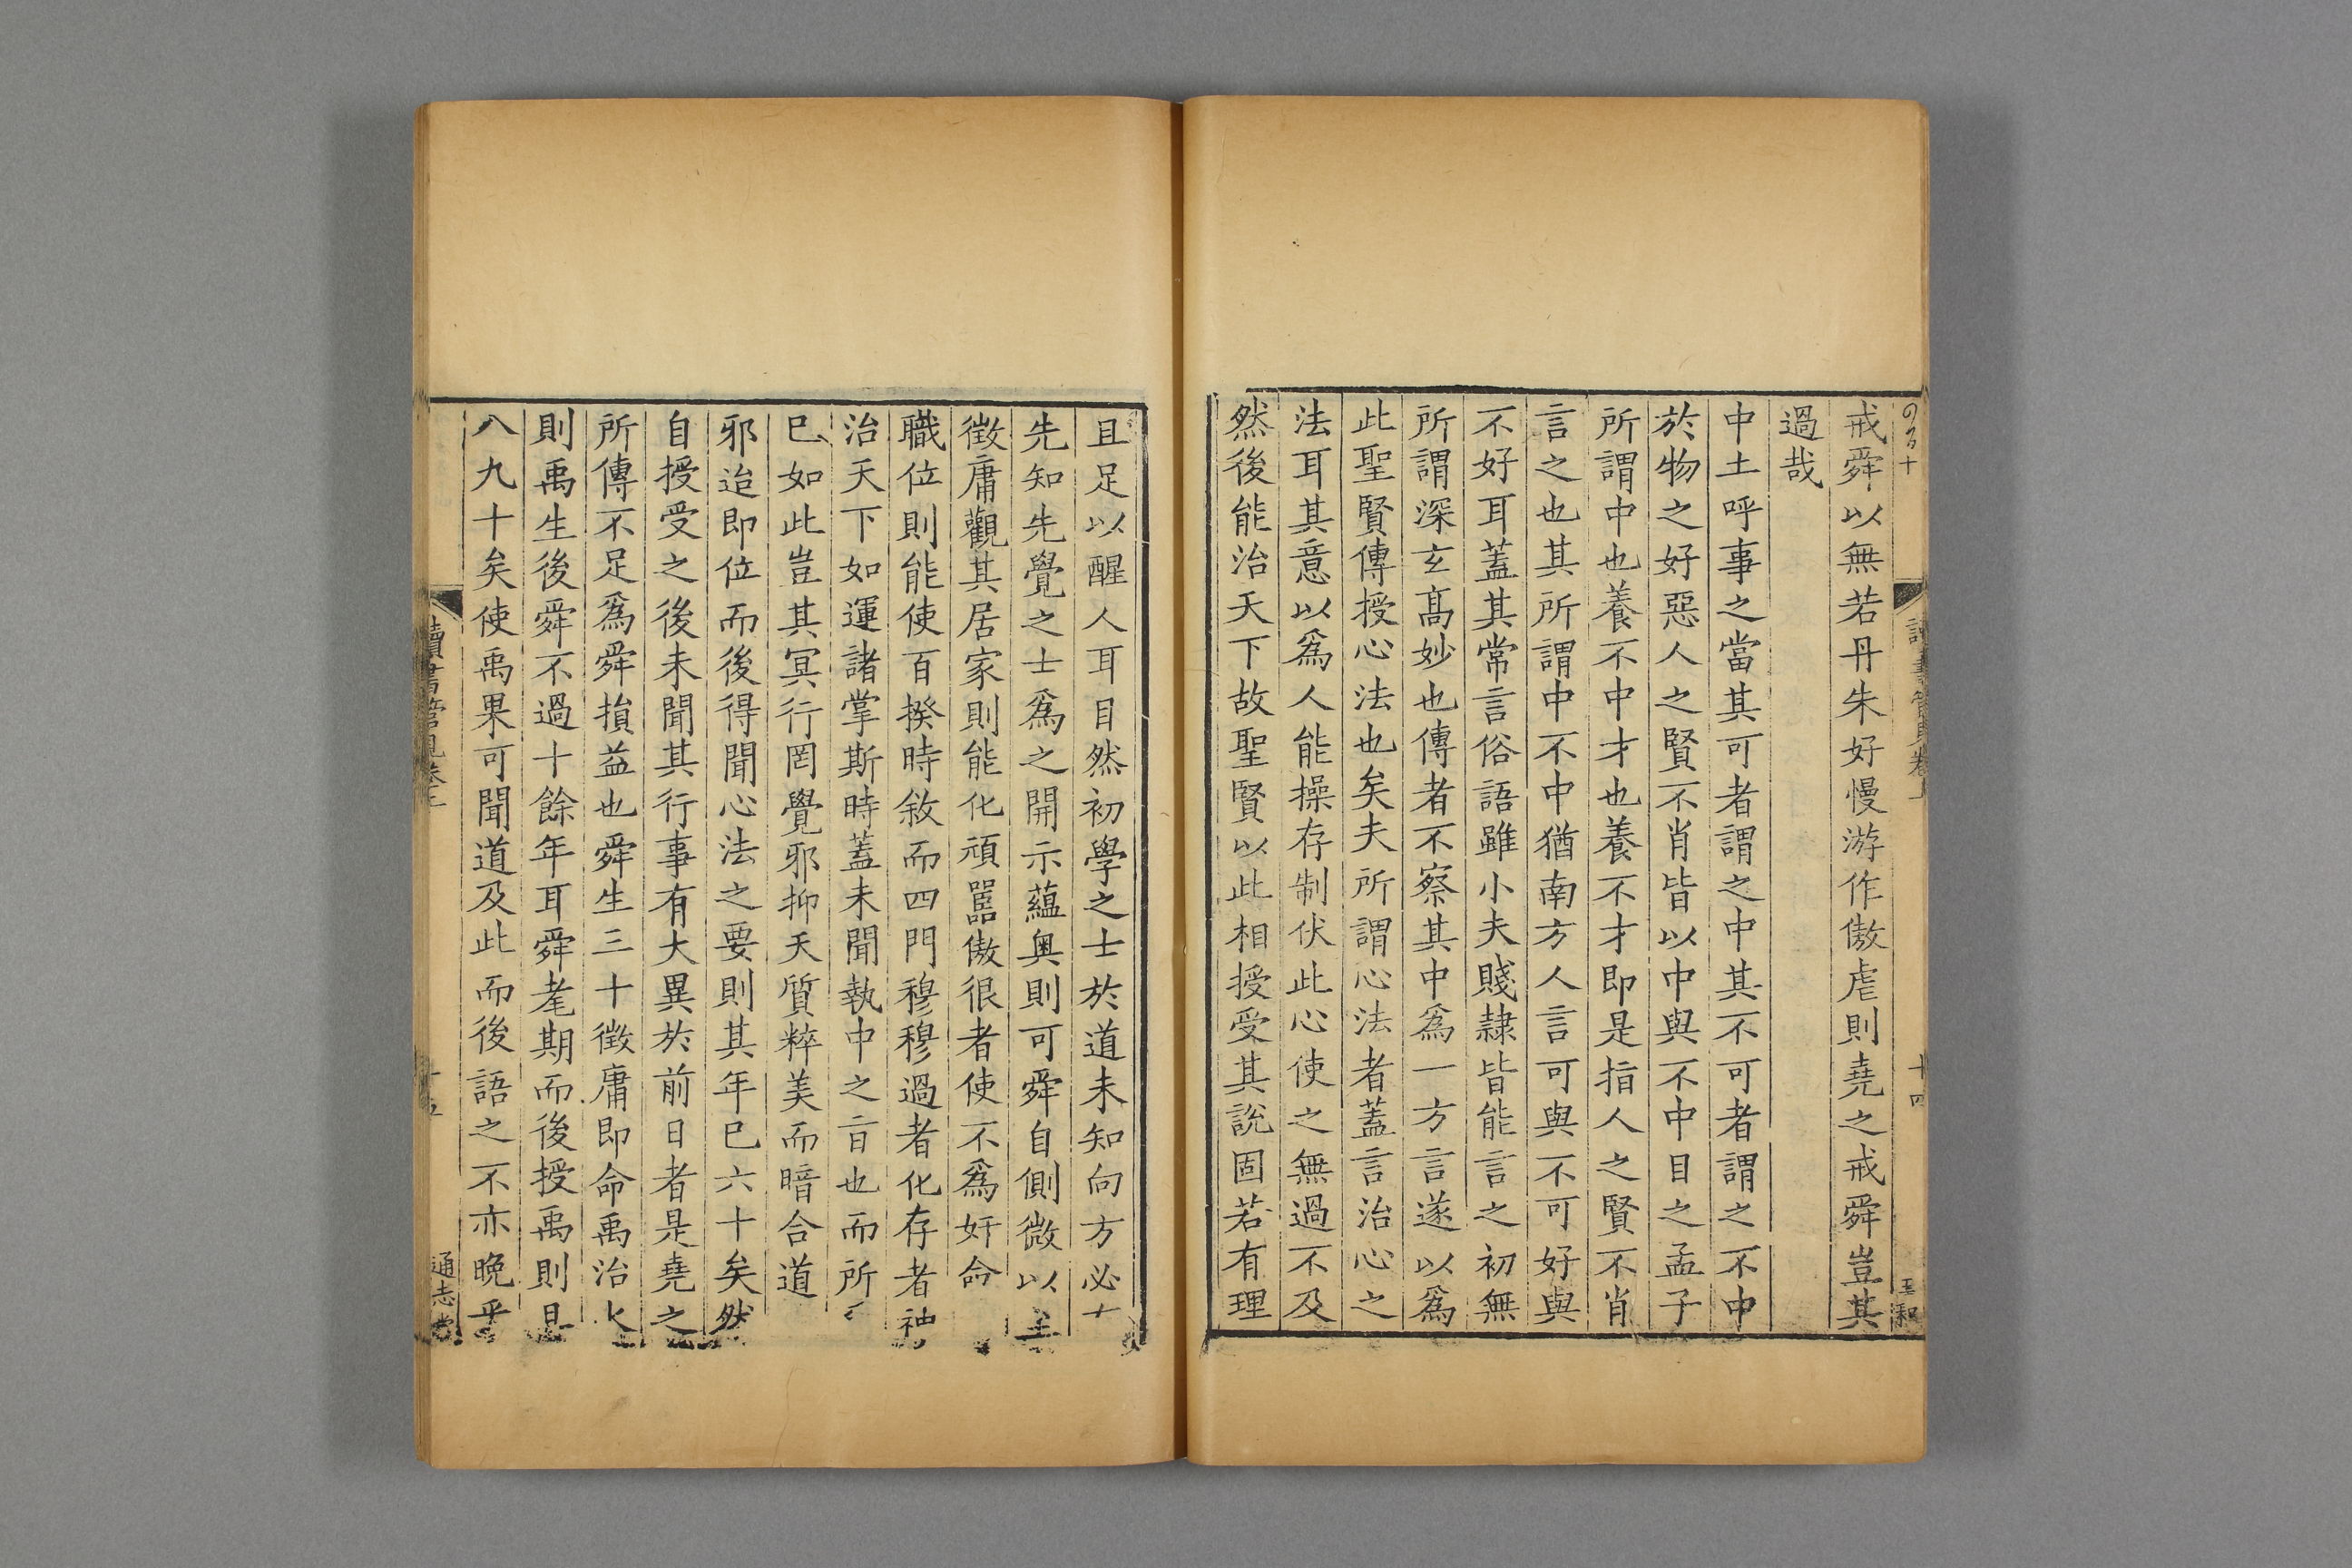 戒舜以無若丹朱好慢游作傲虐則堯之戒舜豈其
過哉
中土呼事之當其可者謂之中其不可者謂之不中
於物之好惡人之賢不肖皆以中與不中目之孟子
所謂中也養不中才也養不才即是指人之賢不肖
言之也其所謂中不中猶南方人言可與不可好與
不好耳蓋其常言俗語雖小夫賤隷皆能言之初無
所謂深玄髙妙也傳者不察其中爲一方言遂以爲
此聖賢傳授心法也矣夫所謂心法者蓋言治心之
法耳其意以爲人能操存制伏此心使之無過不及
然後能治天下故聖賢以此相授受其說固若有理
且足以醒人耳目然初學之士於道未知向方必
先知先覺之士爲之開示蘊奥則可舜自側微以
徴庸觀其居家則能化頑嚚傲很者使不爲奸命
職位則能使百揆時敘而四門穆穆過者化存者神
治天下如運諸掌斯時蓋未聞執中之旨也而所
已如此豈其冥行罔覺邪抑天質粹美而暗合道
邪迨即位而後得聞心法之要則其年已六十矣然
自授受之後未聞其行事有大異於前日者是堯之
所傳不足爲舜損益也舜生三十徴庸即命禹治
則禹生後舜不過十餘年耳舜耄期而後授禹則
八九十矣使禹果可聞道及此而後語之不亦晩乎
讀書管見卷上
通志堂